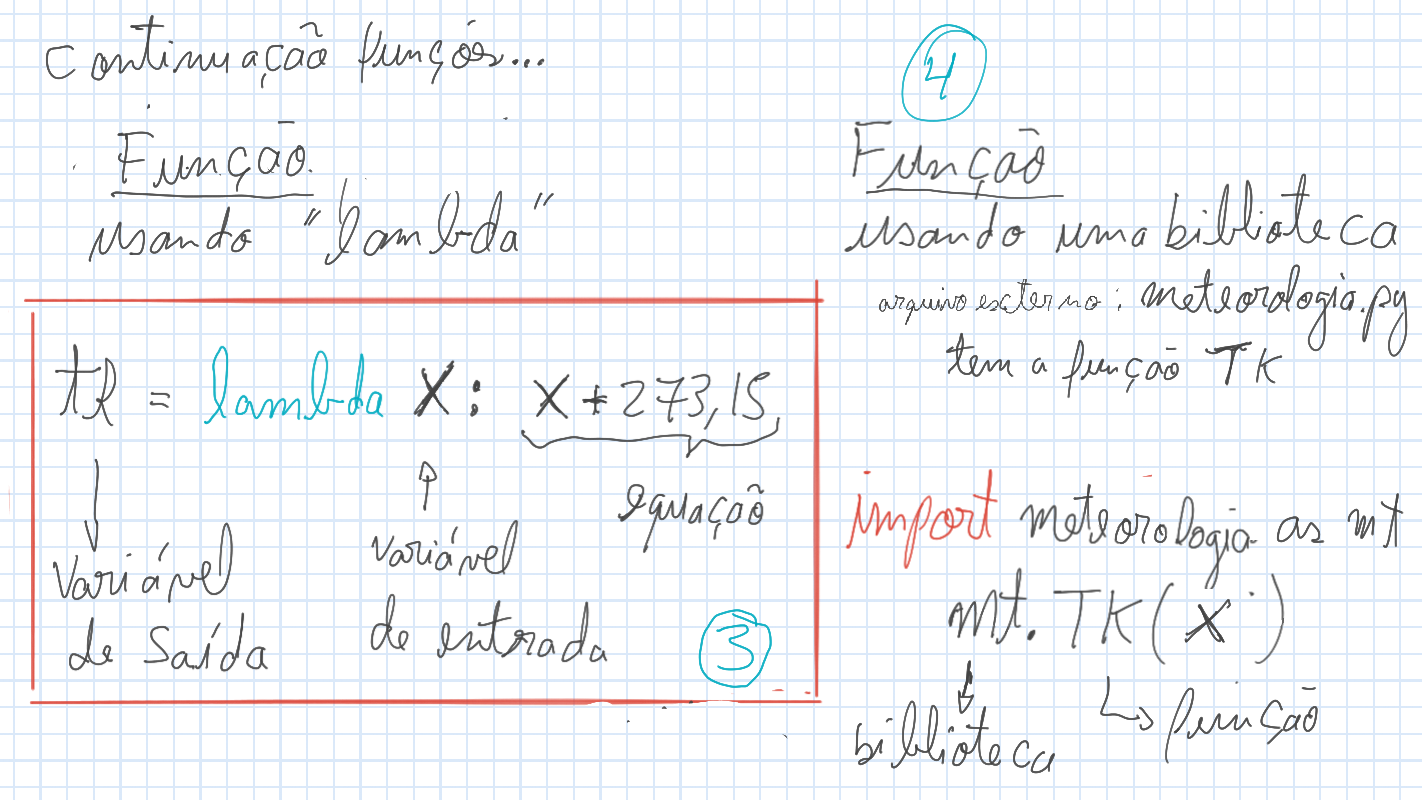 continuação funções...
Função
usando "lambda"
tR = lambda X: X + 273,15
variável
de Saída
variável
de entrada
equação
3
4
Função
usando uma biblioteca
arquivo externo: meteorologia.py
tem a função TK
import meteorologia as mt
mt. TK(X)
biblioteca
função